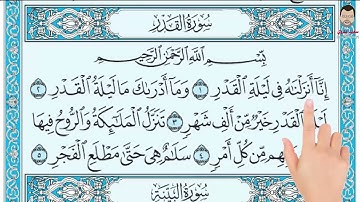 سُورَةُ القَدْرِ
بِسْمِ اللَّهِ الرَّحْمَٰنِ الرَّحِيمِ
إِنَّا أَنزَلْنَٰهُ فِى لَيْلَةِ الْقَدْرِ ١ وَمَا أَدْرَىٰكَ مَا لَيْلَةُ الْقَدْرِ ٢
الْقَدْرِ خَيْرٌ مِّنْ أَلْفِ شَهْرٍ ٣ تَنَزَّلُ الْمَلَٰٓئِكَةُ وَالرُّوحُ فِيهَا
مِّن كُلِّ أَمْرٍ ٤ سَلَٰمٌ هِىَ حَتَّىٰ مَطْلَعِ الْفَجْرِ ٥
سُورَةُ البَيِّنَةِ